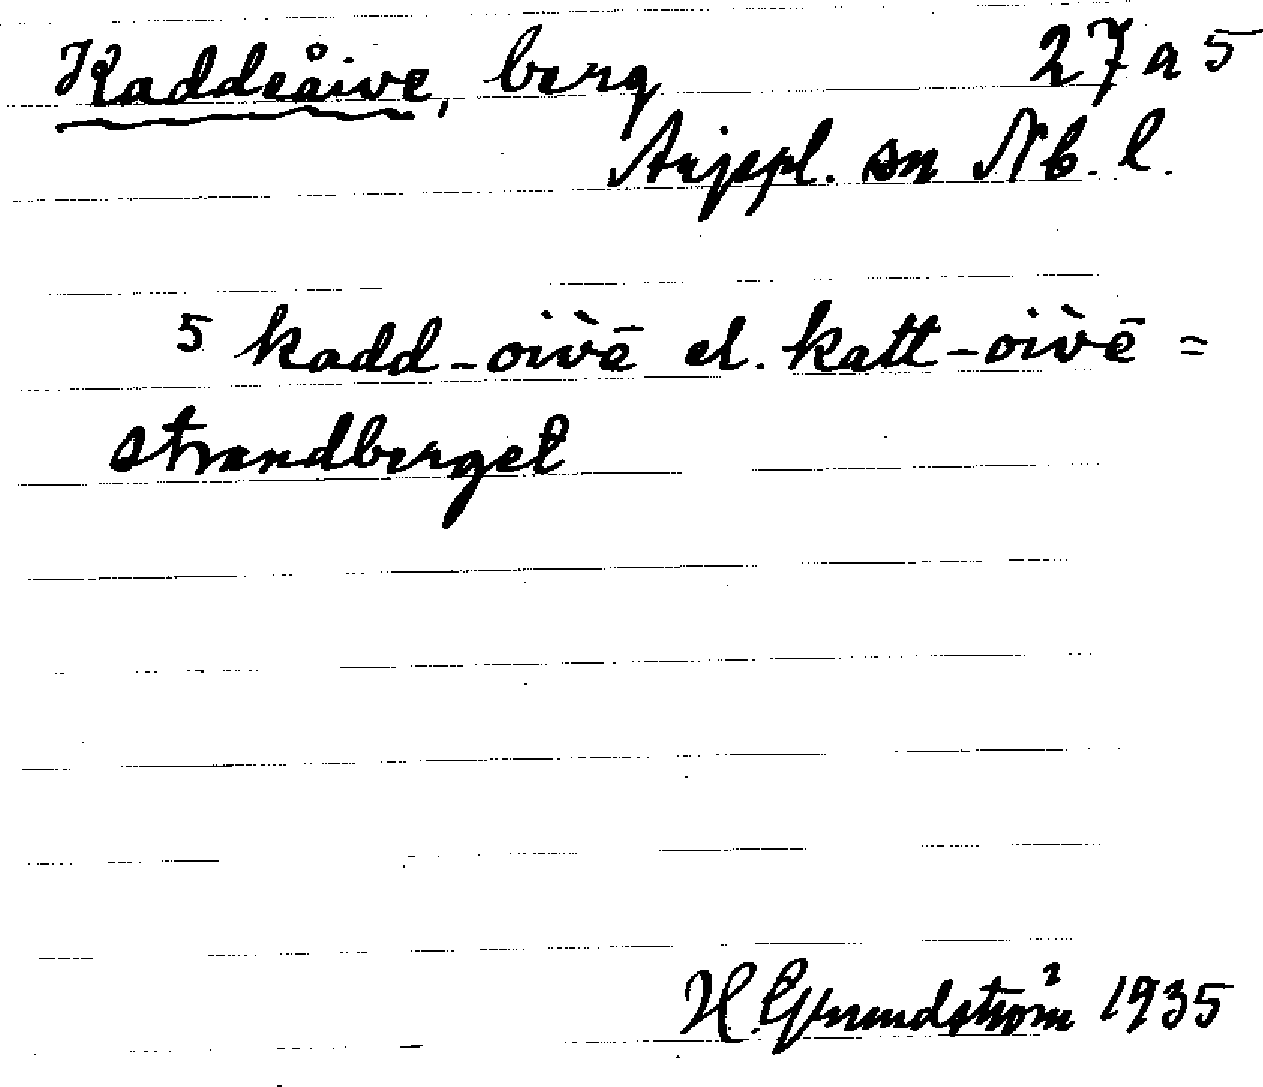 Kaddeåive, berg 27 a 5
Arjepl. sn Nb. l.
5 kadd-oìvē el. katt-oìvē =
strandberget
H. Grundström 1935